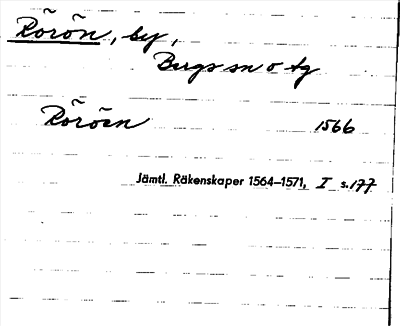 Rörön, by,
Bergs sn o tg
Röröen 1566
Jämtl. Räkenskaper 1564–1571, I s. 177